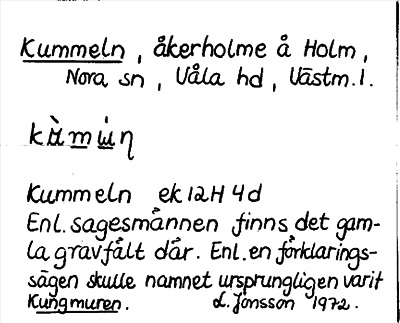 Kummeln, åkerholme å Holm,
Nora sn, Våla hd, Västm.l.
kàmùn
Kummeln ek 12H 4d
Enl. sagesmännen finns det gam-
la gravfält där. Enl. en förklarings-
sägen skulle namnet ursprungligen varit
Kungmuren. L. Jonsson 1972.